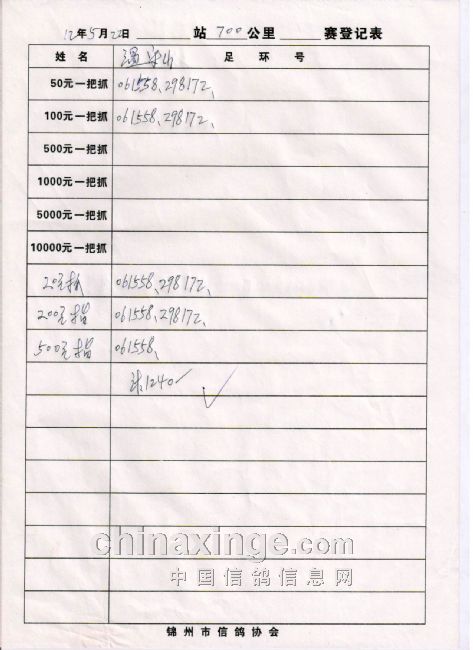 12年5月22日 站 700公里 赛登记表
姓名 足环号
50元一把抓 061558、298172、
100元一把抓 061558、298172、
500元一把抓
1000元一把抓
5000元一把抓
10000元一把抓
20元 061558、298172、
200元指 061558、298172、
500元指 061558、
1240
chinaxinge.com
中国信鸽信息网
锦州市信鸽协会